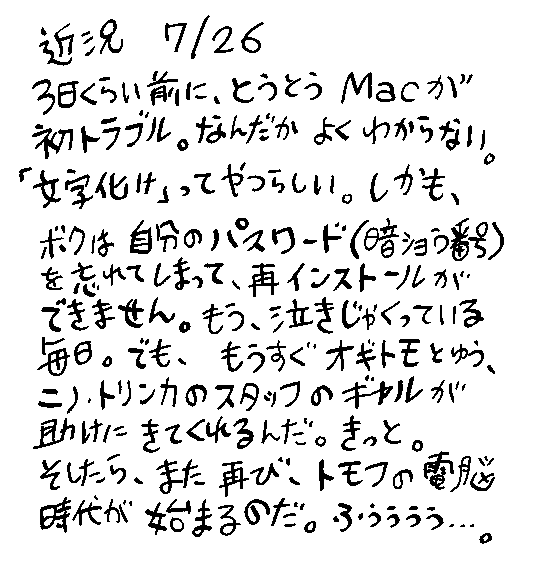 近況 7/26
3日くらい前に、とうとう Macが
初トラブル。なんだか よく わからない。
「文字化け」ってやつらしい。しかも、
ボクは 自分の パスワード(暗ショウ番号)
を忘れてしまって、再インストールが
できません。もう、泣きじゃくっている
毎日。でも、もうすぐ オギトモとゆう、
ニノ・トリンカのスタッフのギャルが
助けに きてくれるんだ。きっと。
そしたら、また 再び、トモフの電脳
時代が 始まるのだ。ふぅぅぅぅ…。